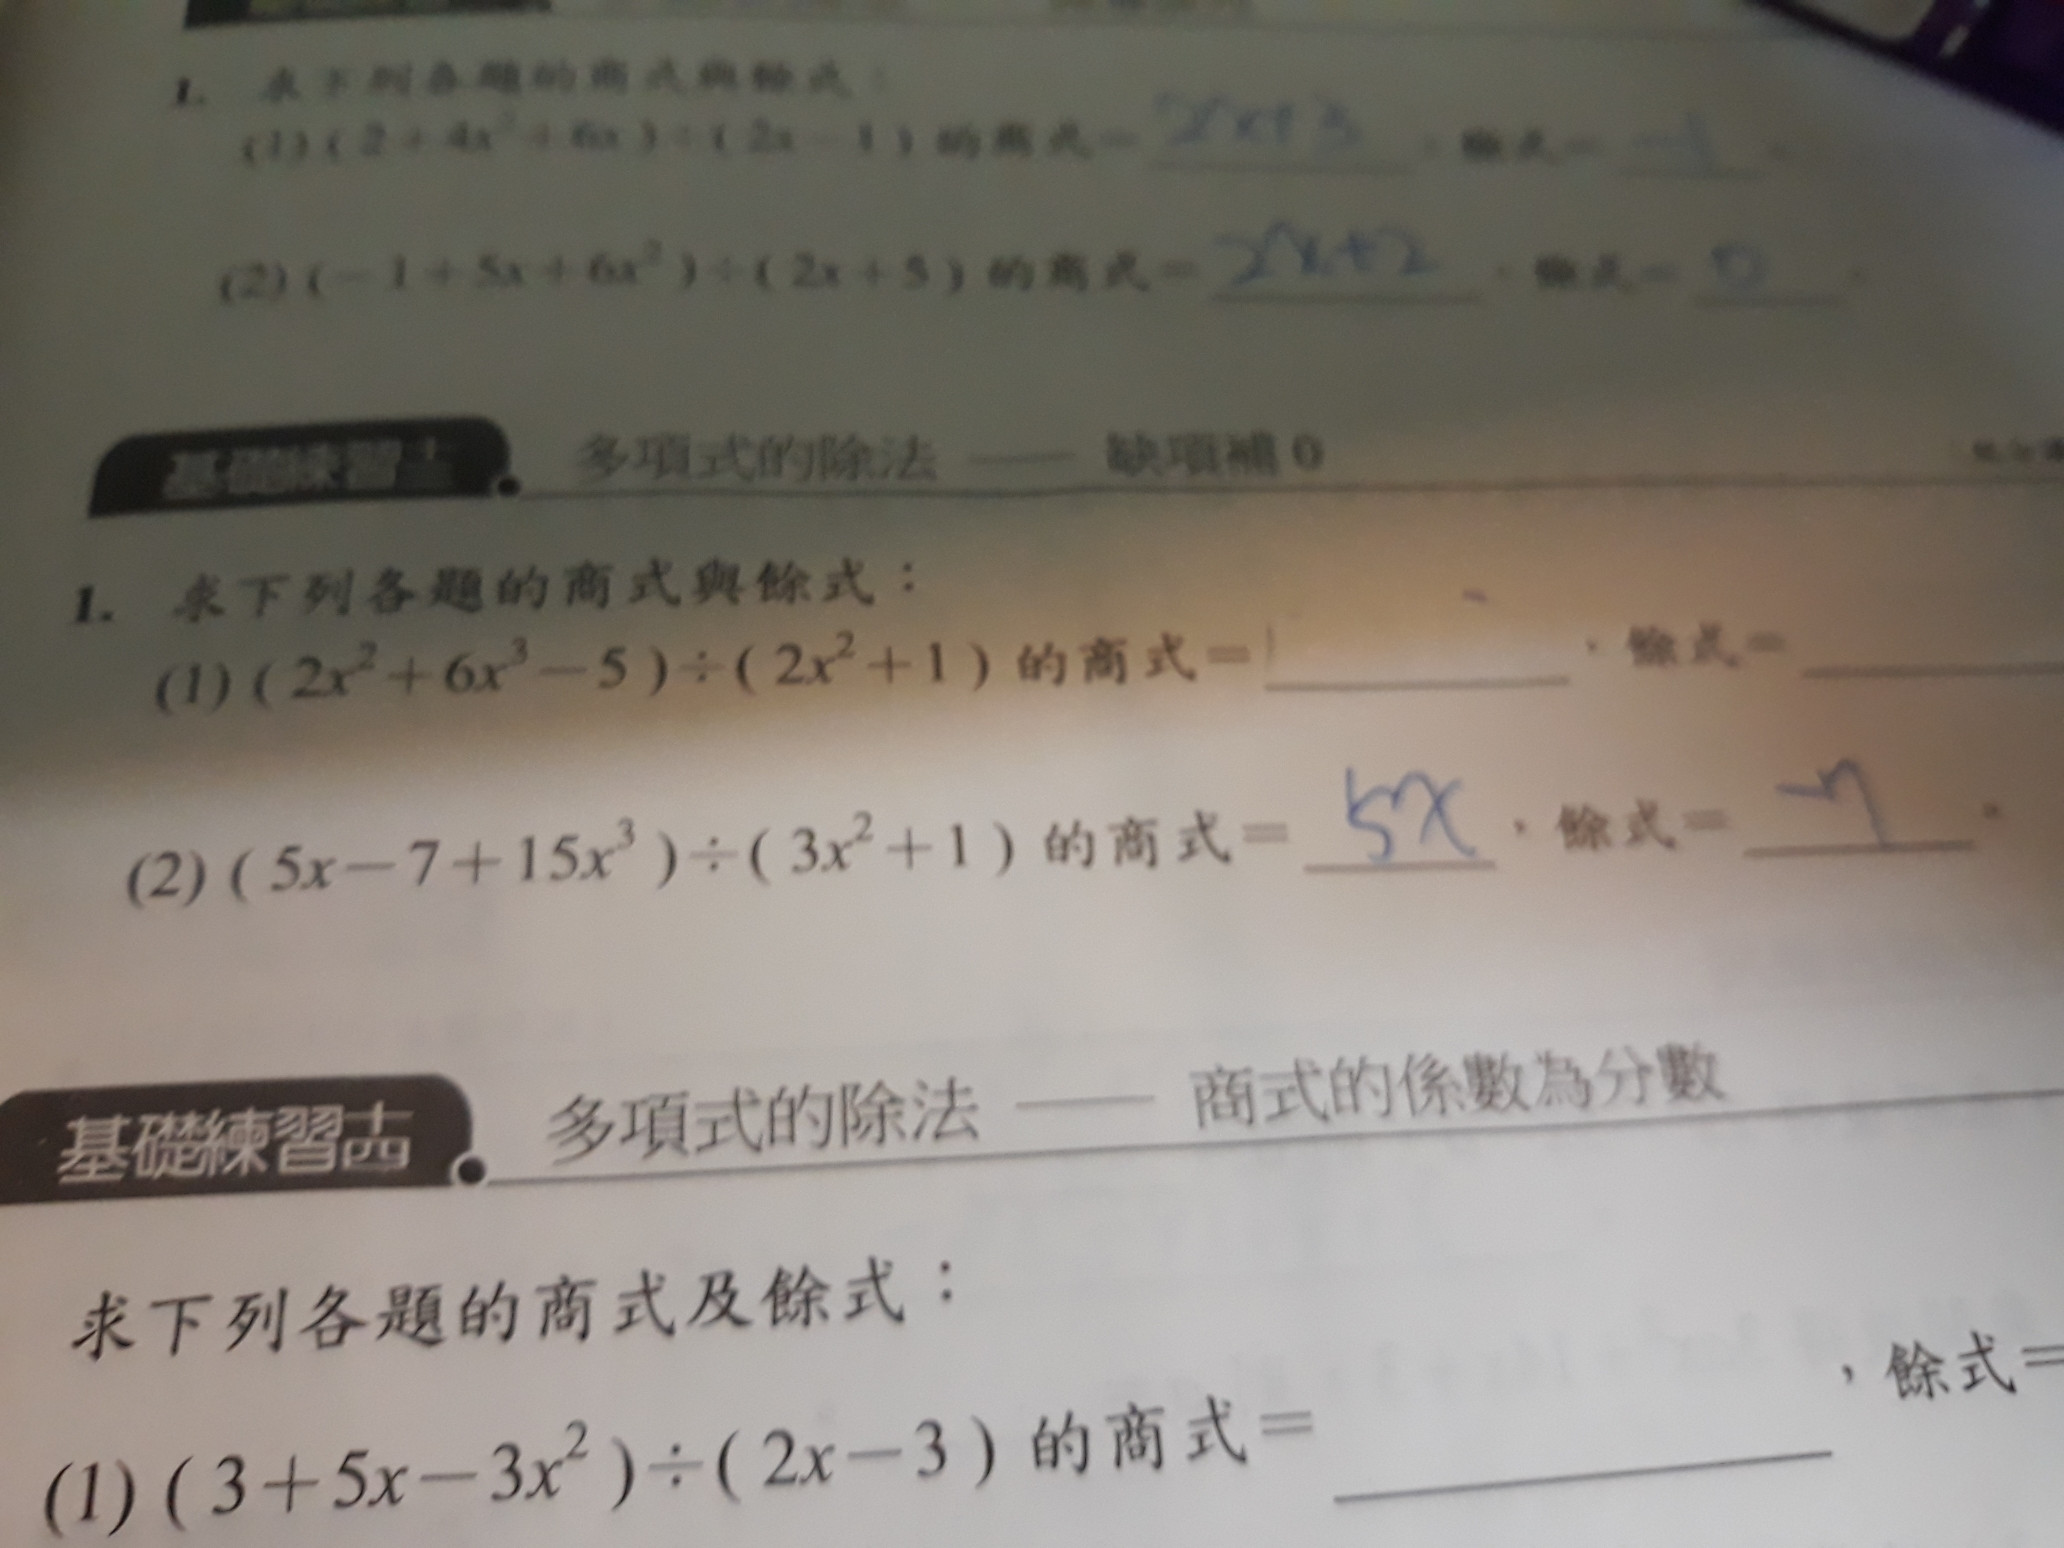 1. 求下列各題的商式與餘式：
(1) ( 2 + 4x² + 6x ) ÷ ( 2x - 1 ) 的商式= 2x+3 ，餘式= -1 。
(2) ( -1 + 5x + 6x² ) ÷ ( 2x + 5 ) 的商式= 2x+2 ，餘式= 0 。
基礎練習 多項式的除法 —— 缺項補0
1. 求下列各題的商式與餘式：
(1) ( 2x² + 6x³ - 5 ) ÷ ( 2x² + 1 ) 的商式= ，餘式=
(2) ( 5x - 7 + 15x³ ) ÷ ( 3x² + 1 ) 的商式= 5x ，餘式= -7 。
基礎練習十四 多項式的除法 —— 商式的係數為分數
求下列各題的商式及餘式：
(1) ( 3 + 5x - 3x² ) ÷ ( 2x - 3 ) 的商式= ，餘式=